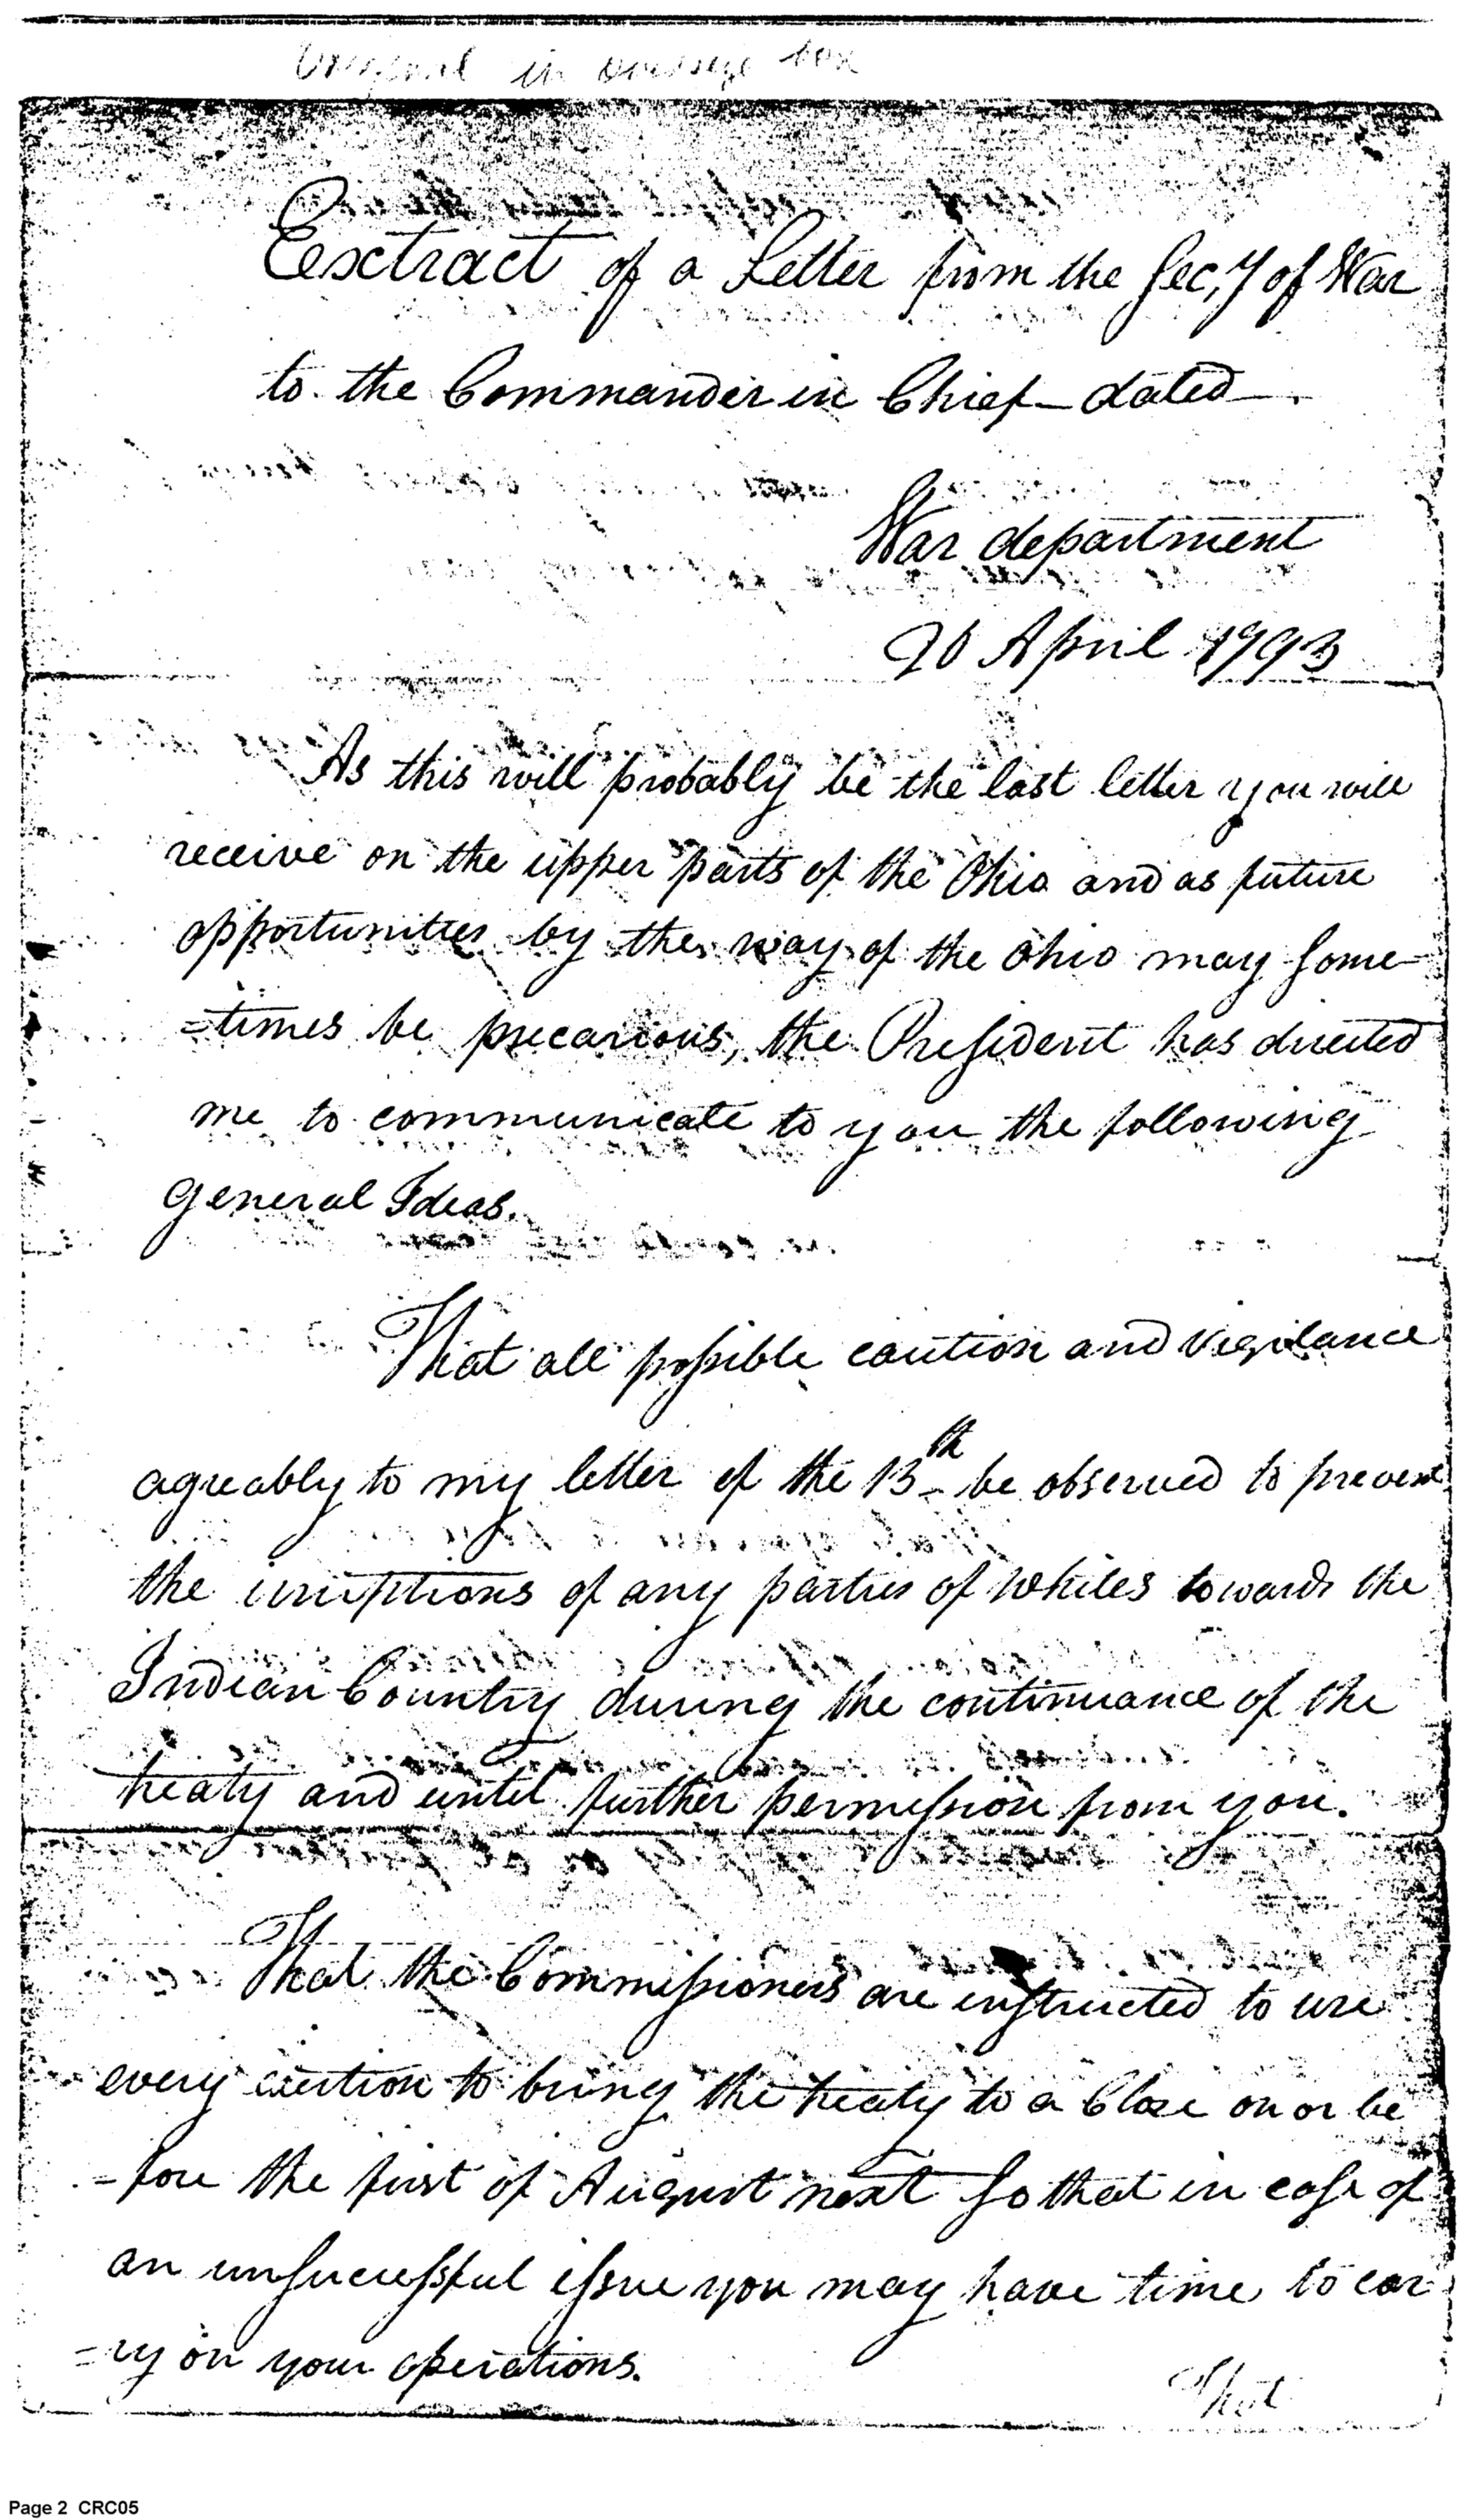 Original in oversize box
Exctract of a Letter from the Sec,y of War
to the Commander in Chief — dated —
War department
20 April 1793
As this will probably be the last letter you will
receive on the upper parts of the Ohio and as future
opportunities by the way of the Ohio may some-
=times be precarious, the President has directed
me to communicate to you the following
general Ideas.
That all possible caution and vigilance
agreably to my letter of the 13th be observed to prevent
the irruptions of any parties of whites towards the
Indian Country during the continuance of the
treaty and until further permission from you.
That the Commissioners are instructed to use
every exertion to bring the treaty to a Close on or be
=fore the first of August next so that in case of
an unsuccessful issue you may have time to car
=ry on your operations.
That
Page 2 CRC05